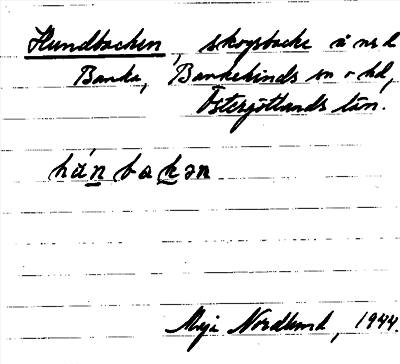 Hundbacken, skogsbacke å nr 2
Banka, Bankekinds sn o hd,
Östergötlands län.
hún bakən
Maja Nordlund, 1944.